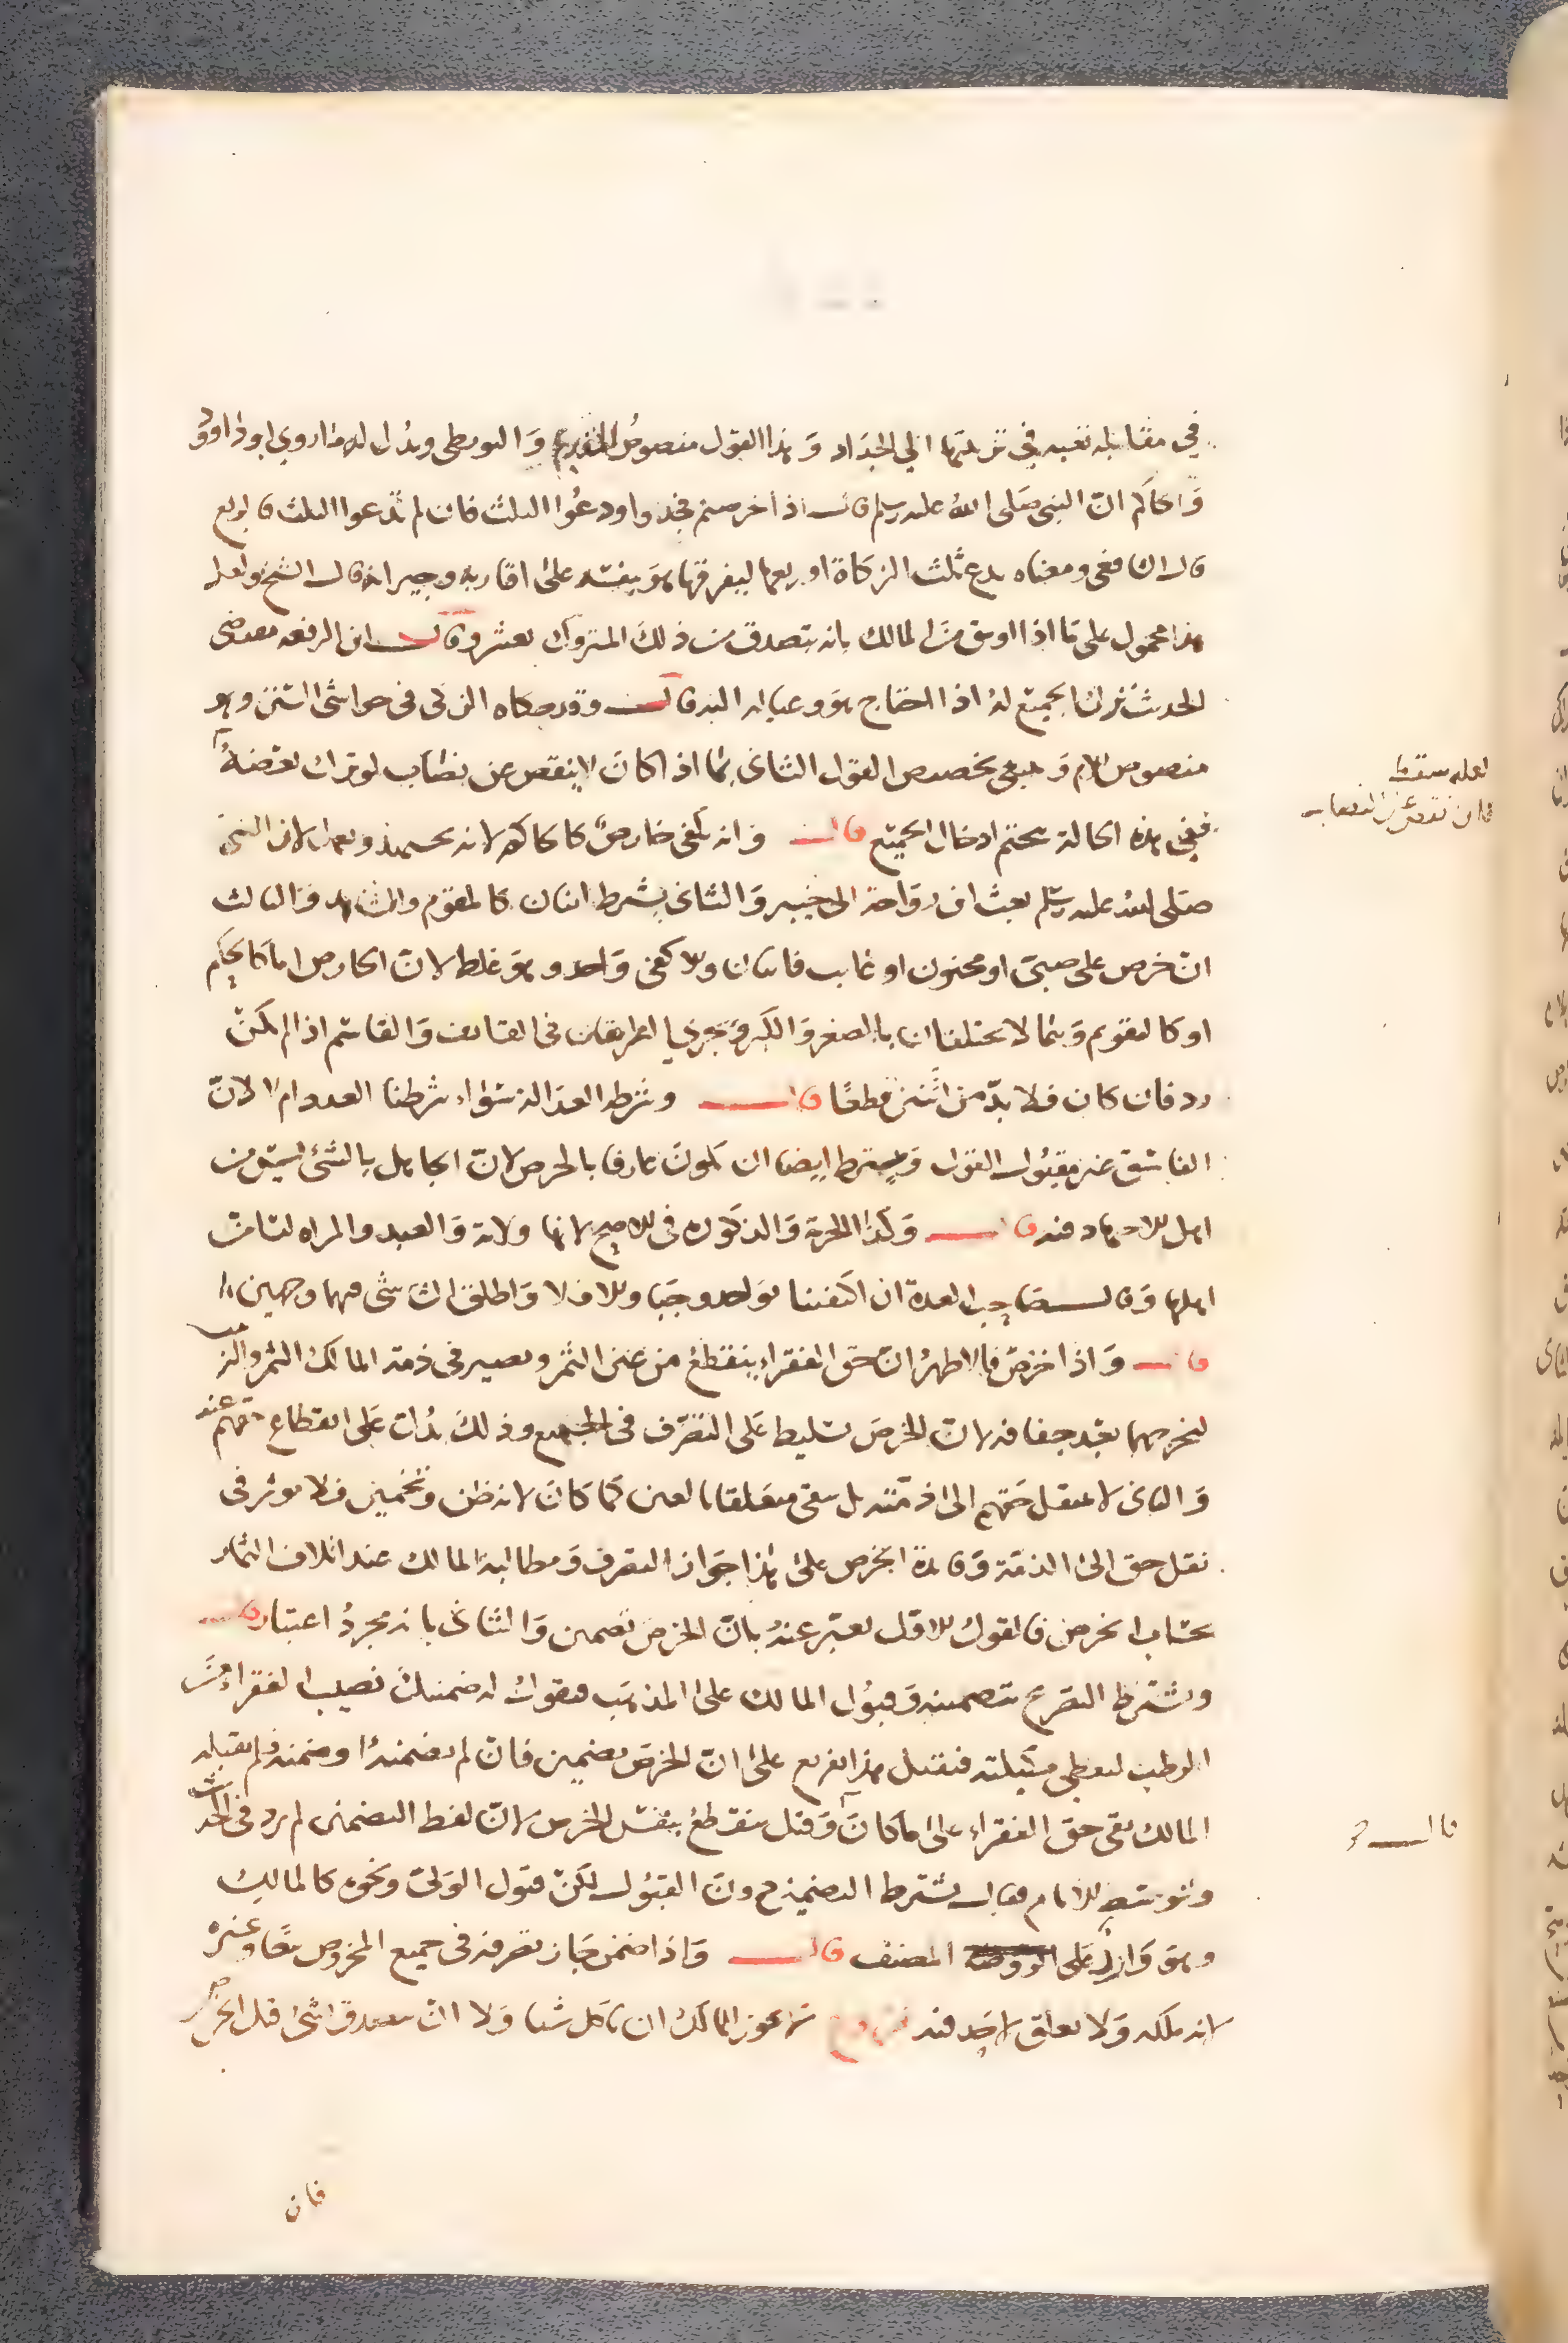 في مقابلة تعبه في تربيتها الي الجداد وهذا القول منصوص القديم والبويطي ويدل له ما روي ابو داوود
والحاكم ان النبي صلى الله عليه وسلم قال اذا خرصتم فخذوا ودعوا الثلث فان لم تدعوا الثلث فالربع
قال الشافعي ومعناه يدع ثلث الزكاة او ربعها ليفرقها هو بنفسه على اقاربه وجيرانه قال الشيخ ولعله
هذا محمول على ما اذا اوثق من المالك بانه يتصدق من ذلك المتروك بعشره قال ابن الرفعه مقتضى
الحديث ترك الجميع له اذا احتاج هو وعياله اليه قال وقد حكاه الزكي في حواشي السنن وهو
منصوص الام وينبغي تخصيص القول الثاني بما اذا كان لا ينقص عن نصاب لو ترك بعضه
ففي هذه الحالة يتحتم ادخال الجميع قال وانه يكفي خارص كالحاكم لانه يجتهد ويعمل لان النبي
صلى الله عليه وسلم بعث ابن رواحة الى خيبر والثاني يشترط اثنان كالمقوم والشاهد والثالث
ان خرص على صبي او مجنون او غايب فاثنان والا كفى واحد وهو غلط لان الخارص اما كالحكم
او كالتقويم وهما لا يختلفان بالصغر والكبر ويجري الطريقان في القايف والقاسم اذا لم يكن
رد فان كان فلا بد من اثنين قطعا قال وشرطه العدالة سواء شرطنا العدد ام لا لان
الفاسق غير مقبول القول ويشترط ايضا ان يكون عارفا بالخرص لان الجاهل بالشئ ليس من
اهل الاجتهاد فيه قال وكذا الحرية والذكوره في الاصح لانها ولاية والعبد والمراه ليسا من
اهلها وقال صاحب العدة ان اكتفينا بواحد وجبا والا فلا واطلق الشاشي فيهما وجهين
قال واذا خرص فالاظهر ان حق الفقراء ينقطع من عين الثمر ويصير في ذمة المالك التمر والزبيب
ليخرجهما بعد جفافه لان الخرص تسليط على التصرف في الجميع وذلك يدل على انقطاع حقهم عنه
والثاني لا ينتقل حقهم الى ذمته بل يبقى متعلقا بالعين كما كان لانه ظن وتخمين فلا يوثر في
نقل حق الى الذمة وفائدة الخرص على هذا جواز التصرف ومطالبة المالك عند اتلاف الثمار
بحساب الخرص فالقول الاول يعبر عنه بان الخرص تضمين والثاني بانه مجرد اعتبار قال
ويشترط التصريح بتضمينه وقبول المالك على المذهب فيقول له ضمنتك نصيب الفقراء من
الرطب ليعطي مثله فيقبل هذا تفريع على ان الخرص تضمين فان لم يضمنه او ضمنه فلم يقبله
المالك بقي حق الفقراء على ما كان وقيل ينقطع بنفس الخرص لان لفظ التضمين لم يرد في الحديث
وتوسط الامام فقال يشترط التضمين دون القبول لكن قبول الولي ونحوه كالمالك
وهو وارد على المصنف قال واذا ضمن جاز تصرفه في جميع المخروص بيعا وغيره
لانه ملكه ولا تعلق لاحد فيه فرع لا يجوز المالك ان ياكل شيا ولا ان يتصدق بشئ قبل الخرص
لعله سقط
فان نقص عن النصاب
قال
فان